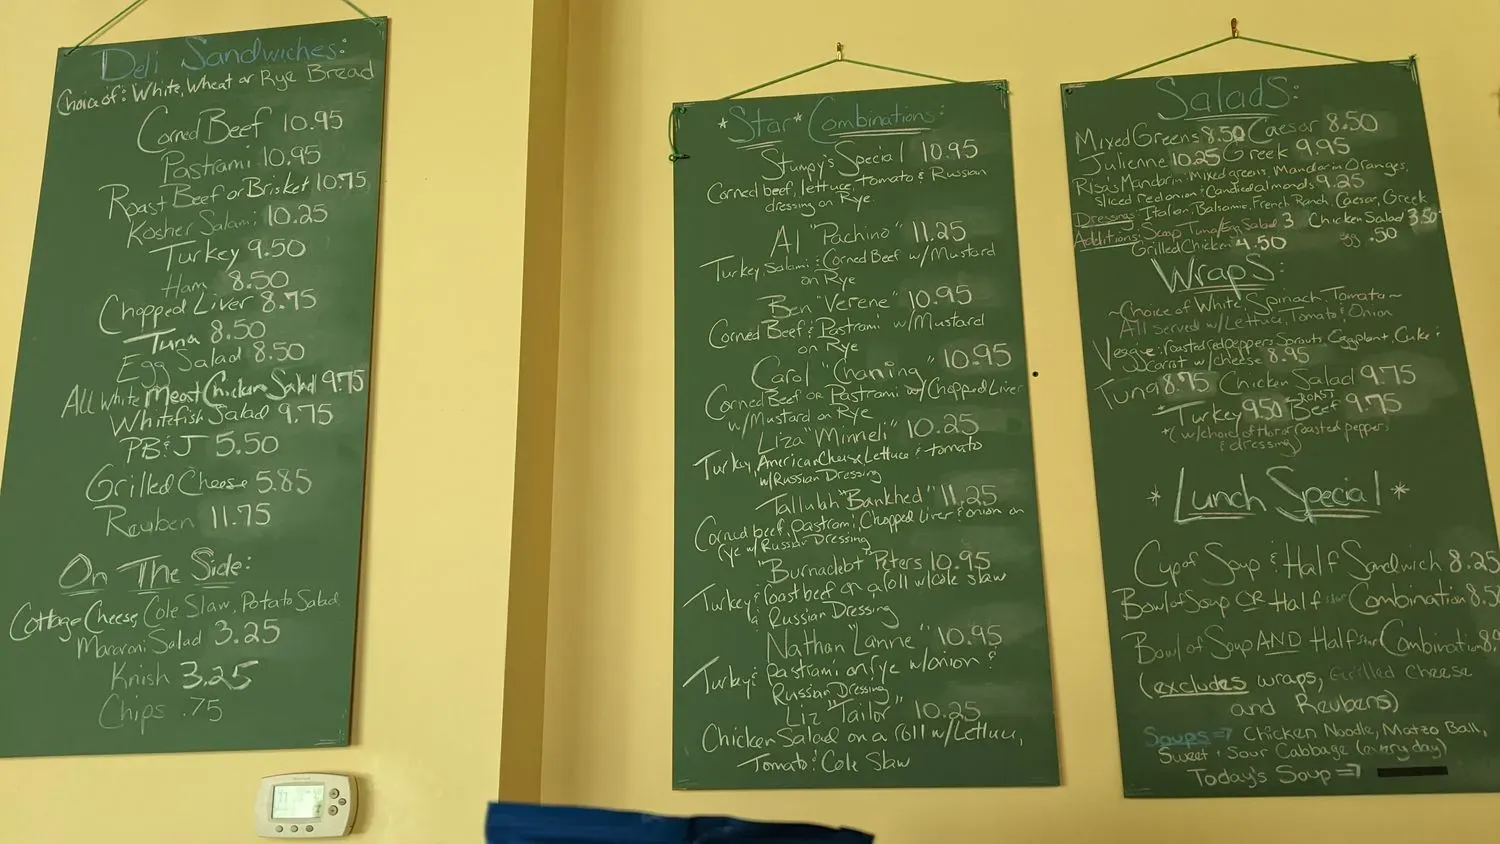 Deli Sandwiches:
Choice of: White, Wheat or Rye Bread
Corned Beef 10.95
Pastrami 10.95
Roast Beef or Brisket 10.75
Kosher Salami 10.25
Turkey 9.50
Ham 8.50
Chopped Liver 8.75
Tuna 8.50
Egg Salad 8.50
All White Meat Chicken Salad 9.75
Whitefish Salad 9.75
PB & J 5.50
Grilled Cheese 5.85
Reuben 11.75
On The Side:
Cottage Cheese, Cole Slaw, Potato Salad,
Macaroni Salad 3.25
Knish 3.25
Chips .75
*Star* Combinations:
Stumpy's Special 10.95
Corned beef, lettuce, tomato & Russian
dressing on Rye
Al "Pachino" 11.25
Turkey, Salami & Corned Beef w/Mustard
on Rye
Ben "Verene" 10.95
Corned Beef & Pastrami w/Mustard
on Rye
Carol "Chaning" 10.95
Corned Beef or Pastrami w/Chopped Liver
w/Mustard on Rye
Liza "Minneli" 10.25
Turkey, American Cheese, Lettuce & tomato
w/Russian Dressing
Tallulah "Bankhed" 11.25
Corned beef, pastrami, Chopped Liver & onion on
rye w/Russian Dressing
"Burnadebt" Peters 10.95
Turkey & roast beef on a roll w/cole slaw
& Russian Dressing
Nathan "Lanne" 10.95
Turkey & pastrami on rye w/onion &
Russian Dressing
Liz "Tailor" 10.25
Chicken Salad on a roll w/Lettuce,
Tomato & Cole Slaw
Salads:
Mixed Greens 8.50 Caesar 8.50
Julienne 10.25 Greek 9.95
Risa's Mandarin: Mixed greens, Mandarin Oranges,
sliced red onion & Candied almonds 9.25
Dressings: Italian, Balsamic, French, Ranch, Caesar, Greek
Additions: Scoop Tuna/Egg Salad 3 Chicken Salad 3.50
Grilled Chicken 4.50 egg .50
Wraps:
~Choice of White, Spinach, Tomato~
All served w/Lettuce, Tomato & Onion
Veggie: roasted red peppers, Sprouts, Eggplant, Cuke &
carrot w/cheese 8.95
Tuna 8.75 Chicken Salad 9.75
*Turkey 9.50 *Roast Beef 9.75
*(w/choice of hot or roasted peppers
& dressing)
*Lunch Special*
Cup of Soup & Half Sandwich 8.25
Bowl of Soup OR Half star Combination 8.50
Bowl of Soup AND Half star Combination
(excludes wraps, Grilled Cheese
and Reubens)
Soups => Chicken Noodle, Matzo Ball,
Sweet & Sour Cabbage (everyday)
Today's Soup =>